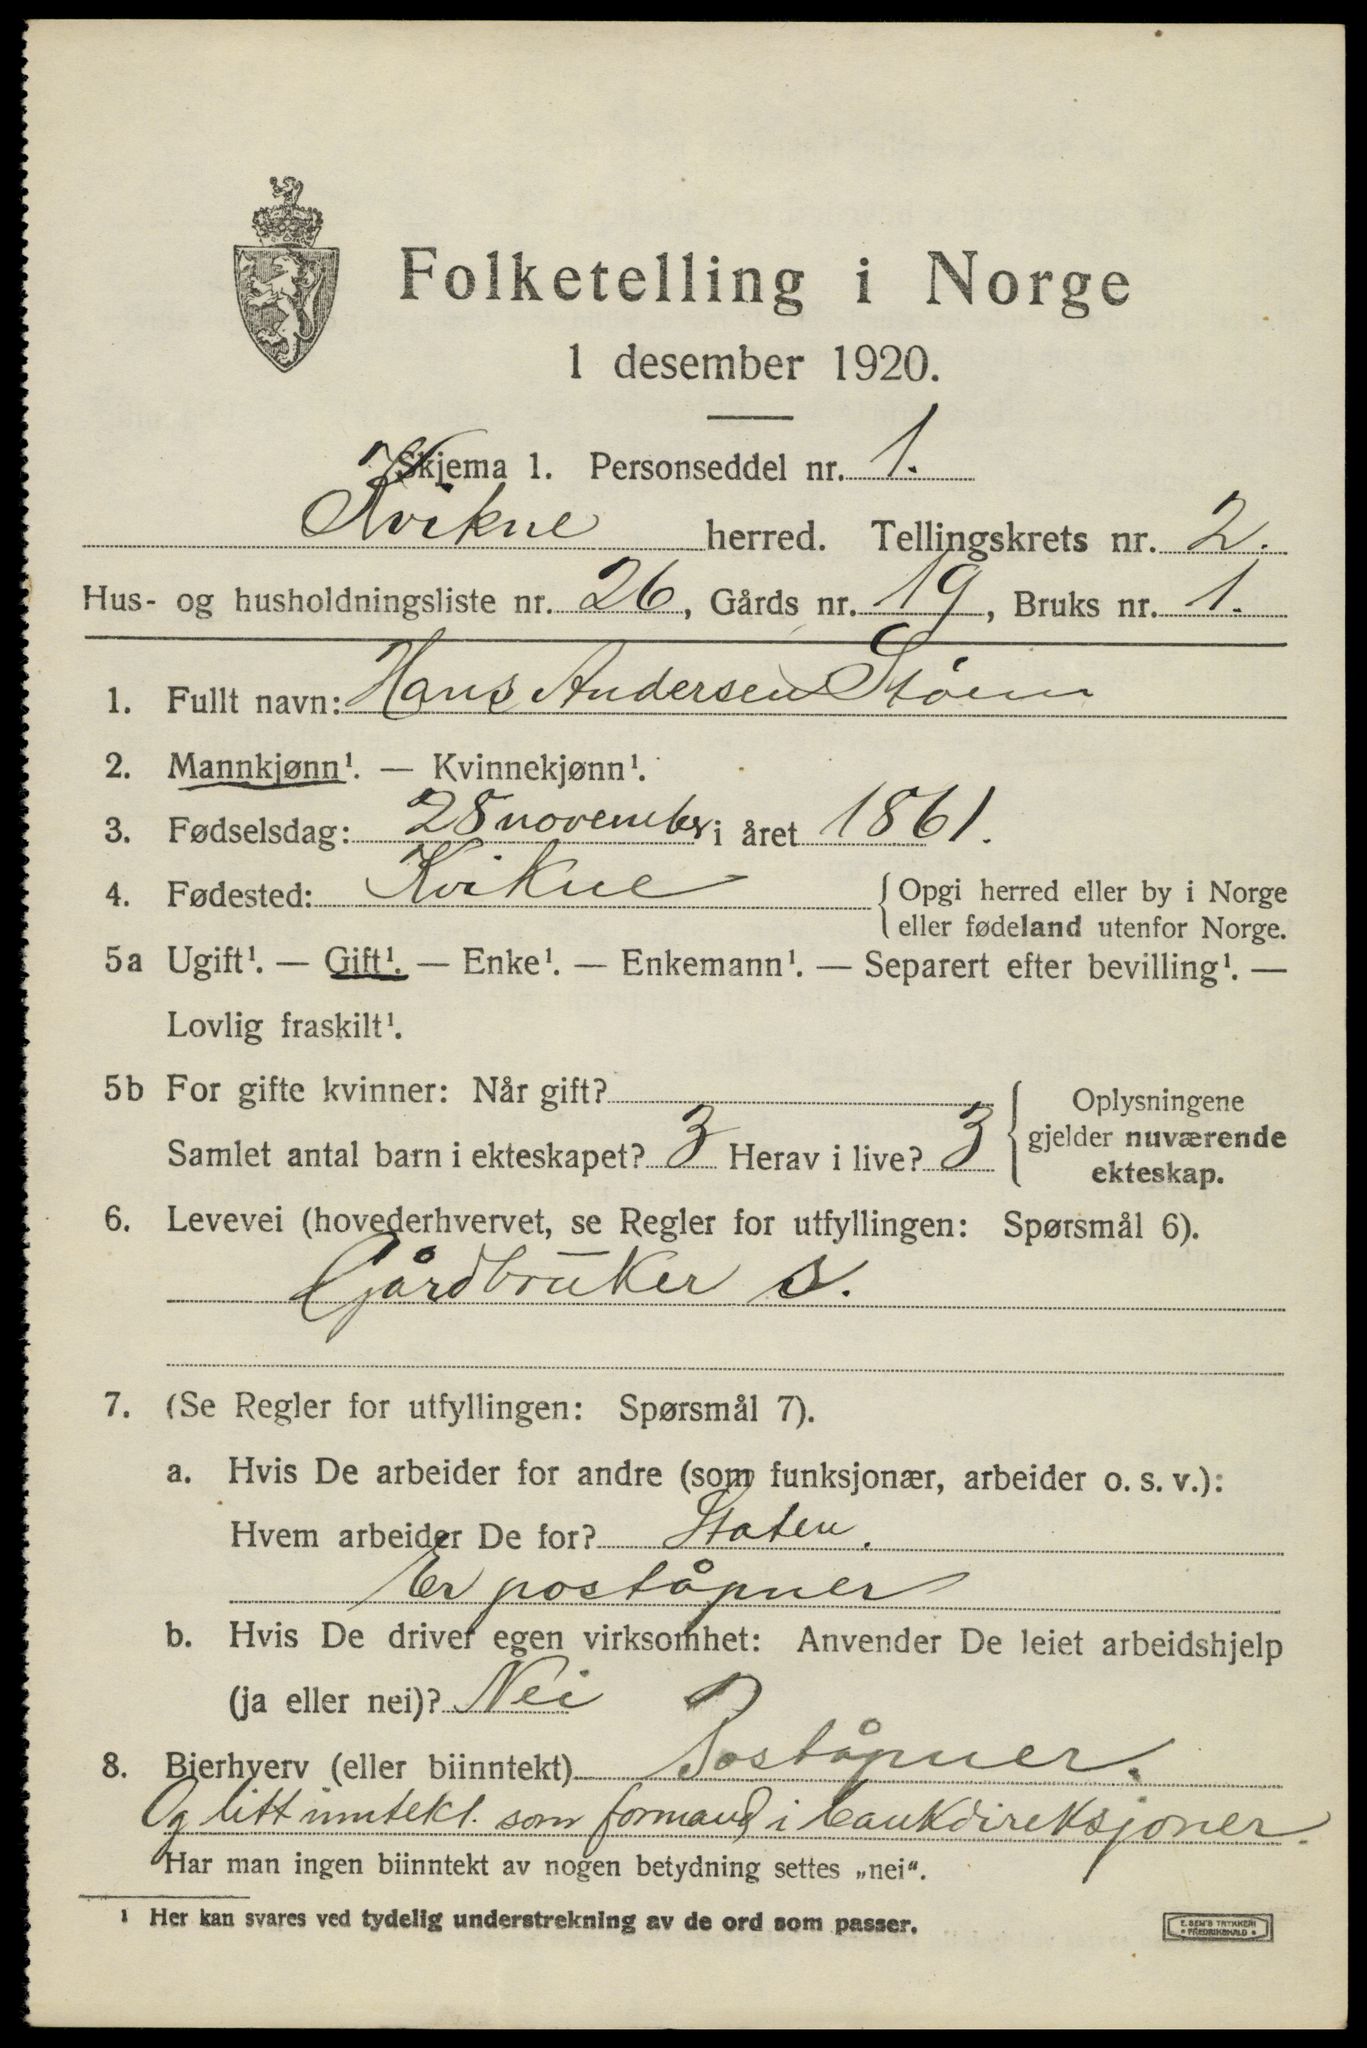 Folketelling i Norge
1 desember 1920.
Skjema 1. Personseddel nr. 1.
Kvikne herred. Tellingskrets nr. 2.
Hus- og husholdningsliste nr. 26, Gårds nr. 19, Bruks nr. 1.
1. Fullt navn: Hans Andersen Støen
2. Mannkjønn¹. — Kvinnekjønn¹.
3. Fødselsdag: 28 november i året 1861.
4. Fødested: Kvikne { Opgi herred eller by i Norge
eller fødeland utenfor Norge.
5a Ugift¹. — Gift¹. — Enke¹. — Enkemann¹. — Separert efter bevilling¹. —
Lovlig fraskilt¹.
5b For gifte kvinner: Når gift?
Samlet antal barn i ekteskapet? 3 Herav i live? 3
{ Oplysningene
gjelder nuværende
ekteskap.
6. Levevei (hovederhvervet, se Regler for utfyllingen: Spørsmål 6).
Gårdbruker s.
7. (Se Regler for utfyllingen: Spørsmål 7).
a. Hvis De arbeider for andre (som funksjonær, arbeider o. s. v.):
Hvem arbeider De for? Staten.
Er poståpner
b. Hvis De driver egen virksomhet: Anvender De leiet arbeidshjelp
(ja eller nei)? Nei
8. Bierhverv (eller biinntekt) Poståpner.
Og litt inntekt. som formand i bankdireksjoner.
Har man ingen biinntekt av nogen betydning settes „nei“.
¹ Her kan svares ved tydelig understrekning av de ord som passer.
E. SEM'S TRYKKERI
• FREDRIKSHALD •